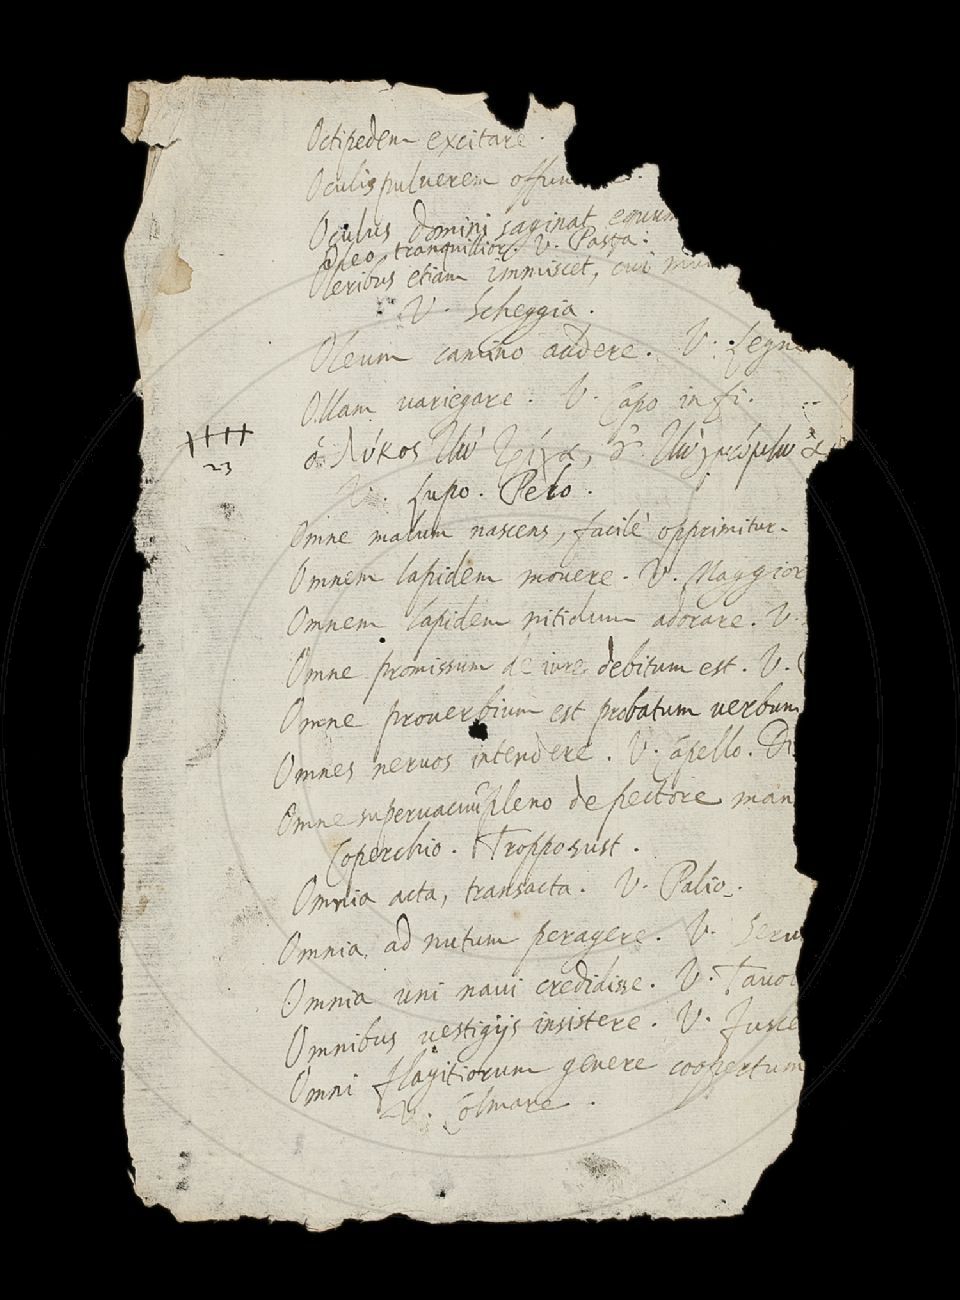 Octipedem excitare.
Oculis pulverem offun
Oculus domini saginat equum
Oleo tranquillior. V. Pasta.
Oleribus etiam immiscet, cui
V. Scheggia.
Oleum camino addere. V. Legn
Ollam variegare. V. Capo in fi.
ὁ λύκος τὴν τρίχα, οὐ τὴν γνώμην
V. Lupo. Pelo.
23
Omne malum nascens, facilè opprimitur.
Omnem lapidem movere. V. Maggior
Omnem lapidem nitidum adorare. V.
Omne promissum de iure debitum est. V.
Omne proverbium est probatum verbum
Omnes nervos intendere. V. Capello. Di
Omne supervacuũ pleno de pectore man
Coperchio. Troppo
Omnia acta, transacta. V. Palio.
Omnia ad nutum peragere. V. Seru
Omnia uni navi credidisse. V. Tavol
Omnibus vestigijs insistere. V. Fuste
Omni flagitiorum genere coopertum
V. Colmare.